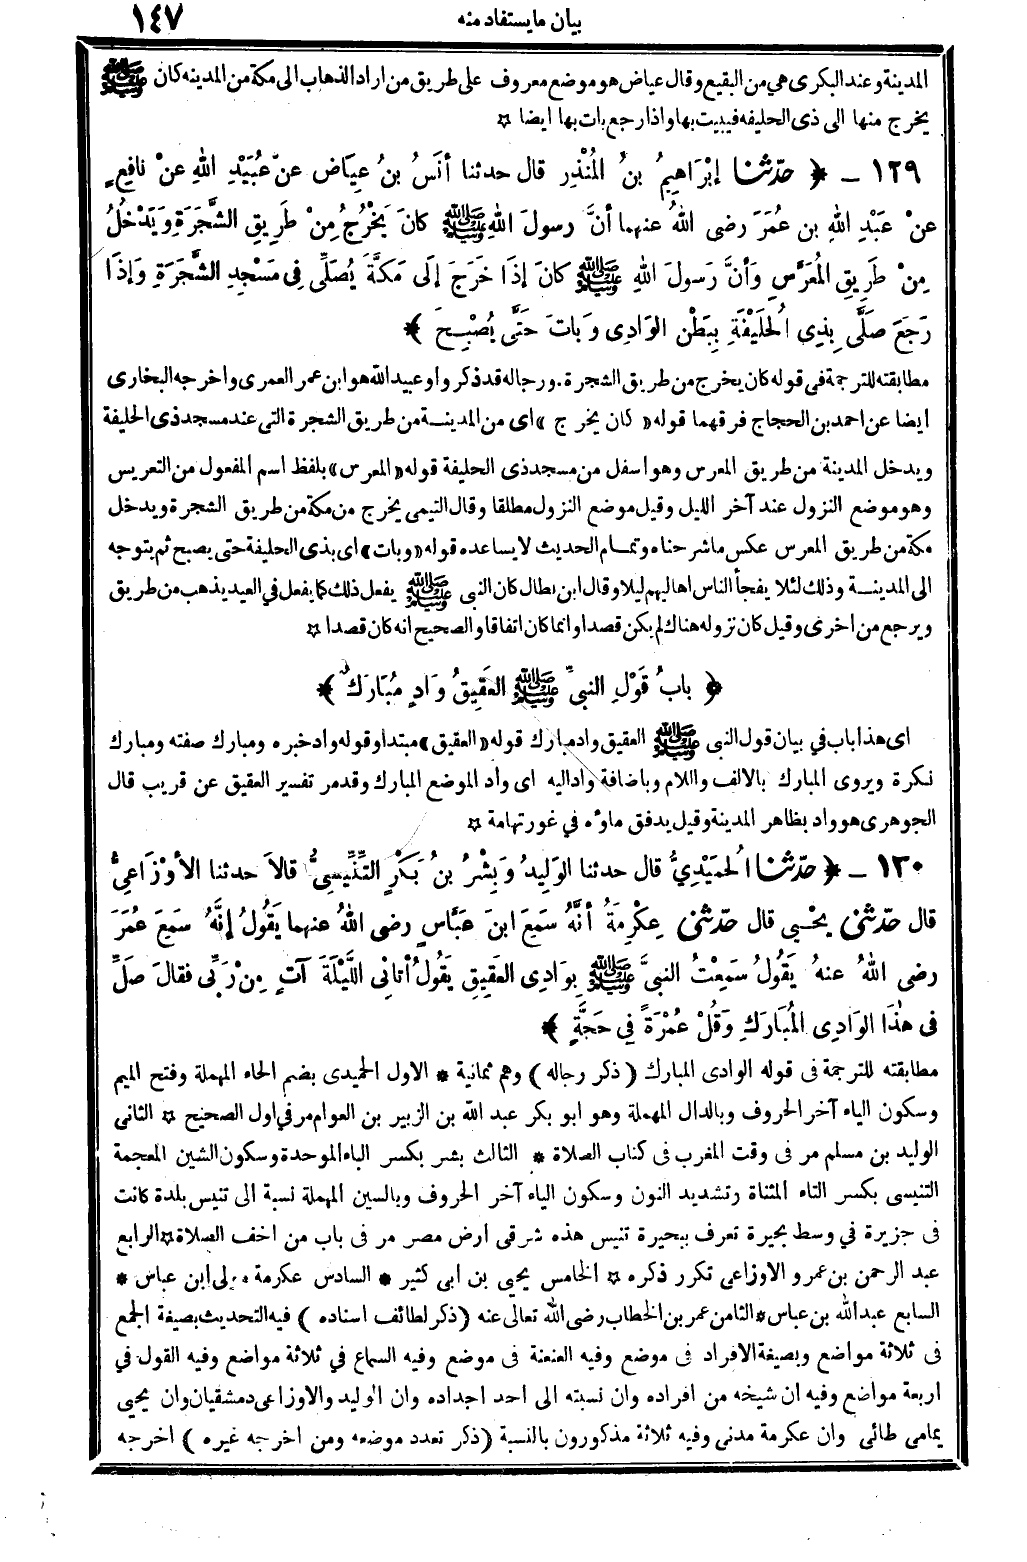 بيان ما يستفاد منه ١٤٧
المدينة وعند البكرى هي من البقيع وقال عياض هو موضع معروف على طريق من اراد الذهاب الى مكة من المدينه كان ﷺ
يخرج منها الى ذى الحليفه فيبيت بها واذا رجع بات بها ايضا ☆
١٢٩ ـ ﴿ حدّثنا إبْرَاهِيمُ بنُ المُنْذِرِ قال حدثنا أنَسُ بنُ عِيَاضٍ عنْ عُبَيْدِ اللهِ عنْ نافِعٍ
عنْ عَبْدِ اللهِ بنِ عُمَرَ رضى اللهُ عنهما أنَّ رسولَ اللهِ ﷺ كانَ يَخْرُجُ مِنْ طَرِيقِ الشَّجَرَةِ وَيَدْخُلُ
مِنْ طَرِيقِ المُعَرَّسِ وَأنَّ رَسولَ اللهِ ﷺ كانَ إذَا خَرَجَ إلَى مَكَّةَ يُصَلِّى فِى مَسْجِدِ الشَّجَرَةِ وَإذَا
رَجَعَ صَلَّى بِذِى الحُلَيْفَةِ بِبَطْنِ الوَادِى وَباتَ حَتَّى يُصْبِحَ ﴾
مطابقته للترجمة فى قوله كان يخرج من طريق الشجرة . ورجاله قد ذكروا وعبيد الله هو ابن عمر العمرى واخرجه البخارى
ايضا عن احمد بن الحجاج فرقهما قوله «كان يخرج» اى من المدينة من طريق الشجرة التى عند مسجد ذى الحليفة
ويدخل المدينة من طريق المعرس وهو اسفل من مسجد ذى الحليفة قوله «المعرس» بلفظ اسم المفعول من التعريس
وهو موضع النزول عند آخر الليل وقيل موضع النزول مطلقا وقال التيمى يخرج من مكة من طريق الشجرة ويدخل
مكة من طريق المعرس عكس ما شرحناه وتمام الحديث لا يساعده قوله «وبات» اى بذى الحليفة حتى يصبح ثم يتوجه
الى المدينة وذلك لئلا يفجأ الناس اهاليهم ليلا وقال ابن بطال كان النبى ﷺ يفعل ذلك كما يفعل في العيد يذهب من طريق
ويرجع من اخرى وقيل كان نزوله هناك لم يكن قصدا وانما كان اتفاقا والصحيح انه كان قصدا ☆
﴿ بابُ قَوْلِ النبىِّ ﷺ العَقِيقُ وَادٍ مُبَارَكٌ ﴾
اى هذا باب في بيان قول النبى ﷺ العقيق واد مبارك قوله «العقيق» مبتدا وقوله واد خبره ومبارك صفته ومبارك
نكرة ويروى المبارك بالالف واللام وباضافة واد اليه اى واد الموضع المبارك وقد مر تفسير العقيق عن قريب قال
الجوهرى هو واد بظاهر المدينة وقيل يدفق ماؤه في غور تهامة ☆
١٣٠ ـ ﴿ حدّثنا الحُمَيْدِىُّ قال حدثنا الوَلِيدُ وَبِشْرُ بنُ بَكْرٍ التِّنِّيسِىُّ قالاَ حدثنا الأوْزَاعِىُّ
قال حدّثنى يَحْيى قال حدّثنى عِكْرِمَةُ أنَّهُ سَمِعَ ابنَ عَبَّاسٍ رضى اللهُ عنهما يَقُولُ إنَّهُ سَمِعَ عُمَرَ
رضى اللهُ عنهُ يَقُولُ سَمِعْتُ النبىَّ ﷺ بِوَادِى العَقِيقِ يَقُولُ أتانِى اللَّيْلَةَ آتٍ مِنْ رَبِّى فقالَ صَلِّ
فى هٰذَا الوَادِى المُبَارَكِ وَقُلْ عُمْرَةً فِى حَجَّةٍ ﴾
مطابقته للترجمة فى قوله الوادى المبارك ( ذكر رجاله ) وهم ثمانية * الاول الحميدى بضم الحاء المهملة وفتح الميم
وسكون الياء آخر الحروف وبالدال المهملة وهو ابو بكر عبد الله بن الزبير بن العوام مر في اول الصحيح ☆ الثانى
الوليد بن مسلم مر فى وقت المغرب فى كتاب الصلاة * الثالث بشر بكسر الباء الموحدة وسكون الشين المعجمة
التنيسى بكسر التاء المثناة وتشديد النون وسكون الياء آخر الحروف وبالسين المهملة نسبة الى تنيس بلدة كانت
فى جزيرة في وسط بحيرة تعرف ببحيرة تنيس هذه شرقى ارض مصر مر فى باب من اخف الصلاة ☆ الرابع
عبد الرحمن بن عمرو الاوزاعى تكرر ذكره ☆ الخامس يحيى بن ابى كثير * السادس عكرمة مولى ابن عباس *
السابع عبد الله بن عباس * الثامن عمر بن الخطاب رضى الله تعالى عنه ( ذكر لطائف اسناده ) فيه التحديث بصيغة الجمع
فى ثلاثة مواضع وبصيغة الافراد فى موضع وفيه العنعنة فى موضع وفيه السماع في ثلاثة مواضع وفيه القول في
اربعة مواضع وفيه ان شيخه من افراده وان نسبته الى احد اجداده وان الوليد والاوزاعى دمشقيان وان يحيى
يمامى طائى وان عكرمة مدنى وفيه ثلاثة مذكورون بالنسبة ( ذكر تعدد موضعه ومن اخرجه غيره ) اخرجه